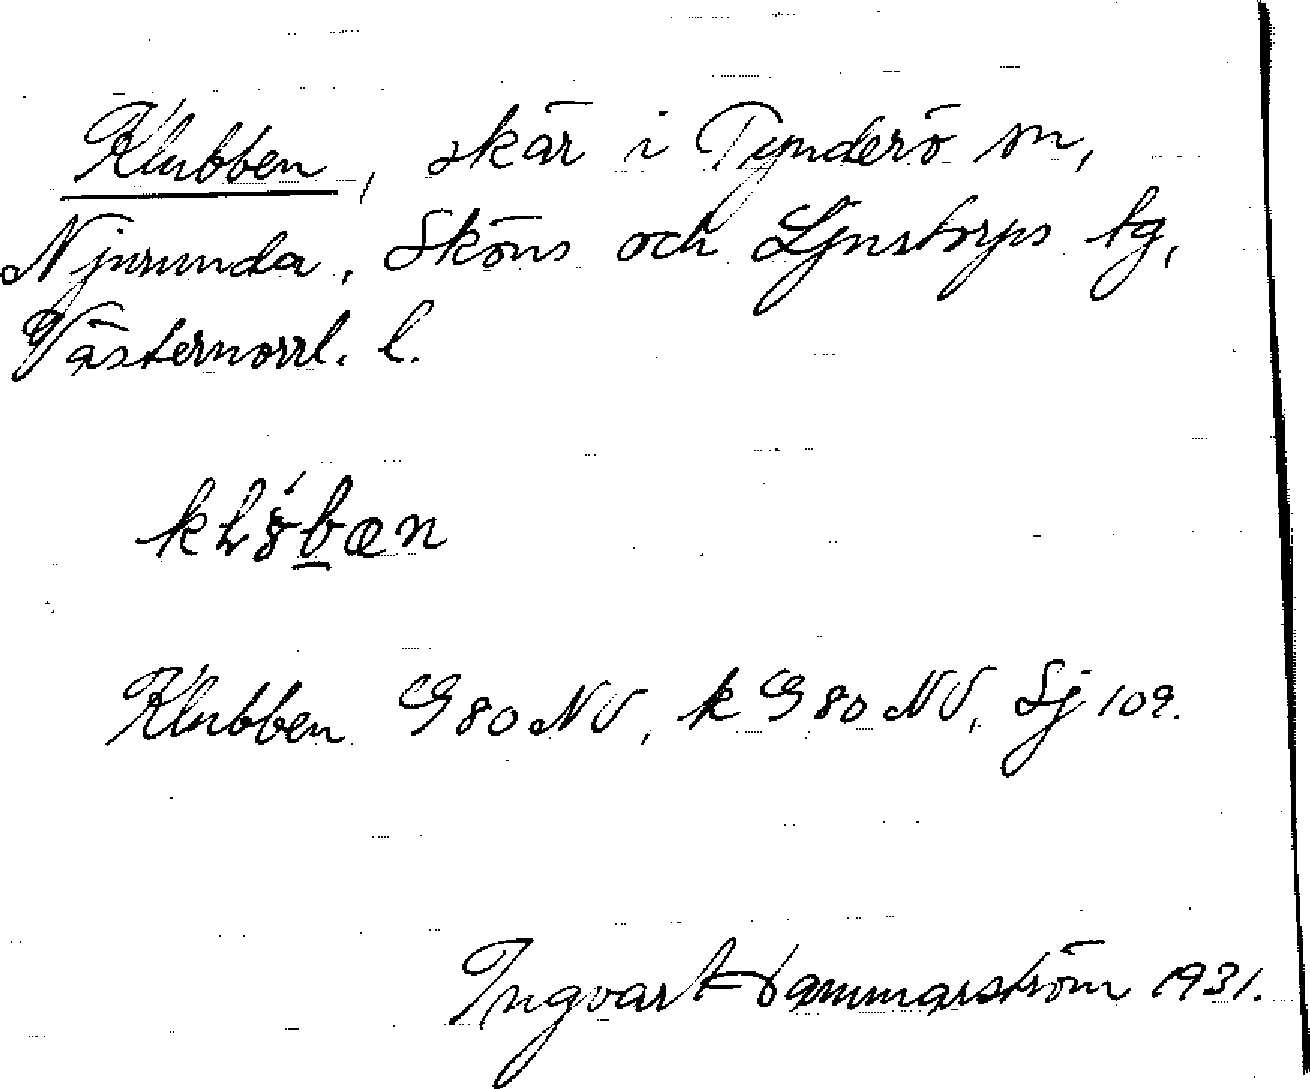 Klubben, skär i Tynderö sn,
Njurunda, Sköns och Ljustorps tg,
Västernorrl. l.
Klubben G 80 NV, k G 80 NV, Sj 109.
Ingvar Hammarström 1931.